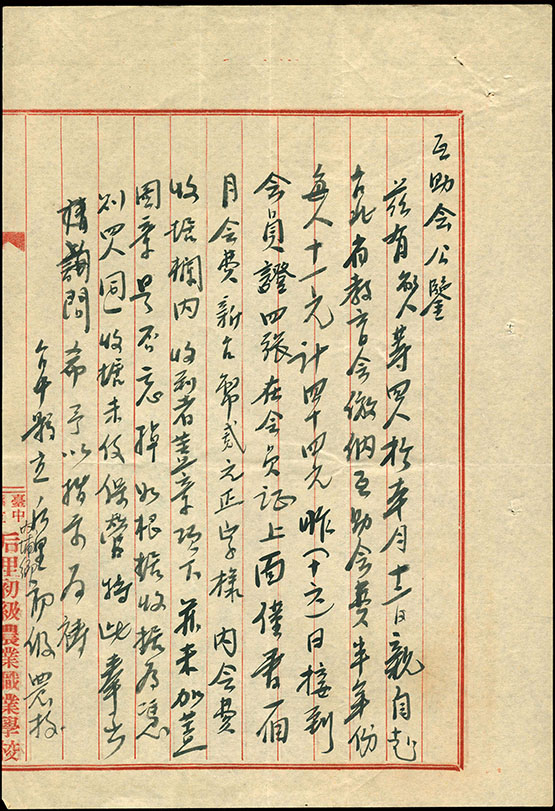 互助会公鑒
茲有敝人等四人於本月十二日親自赴
台北省教育会繳納互助会費半年份
每人十一元計四十四元昨(十六)日接到
会員證四張在会員证上面僅書一個
月会費新台幣貳元正字樣內会費
收據欄内收到者蓋章項下並未加蓋
圖章是否忘掉如根據收據为憑
则四人同收據未役保管特此奉书
請詢問希予以指示为禱
台中縣立后里初级農校
內埔鄉
臺中縣立
后里初級農業職業學校